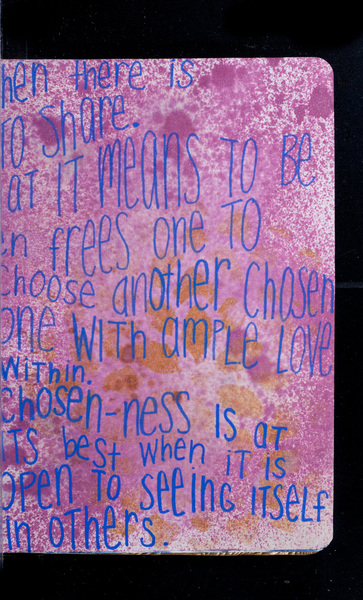 hen there is
To share.
at IT means To Be
en frees one To
choose another chosen
one with ample love
within.
chosen-ness is at
its best when it is
open to seeing itself
in others.